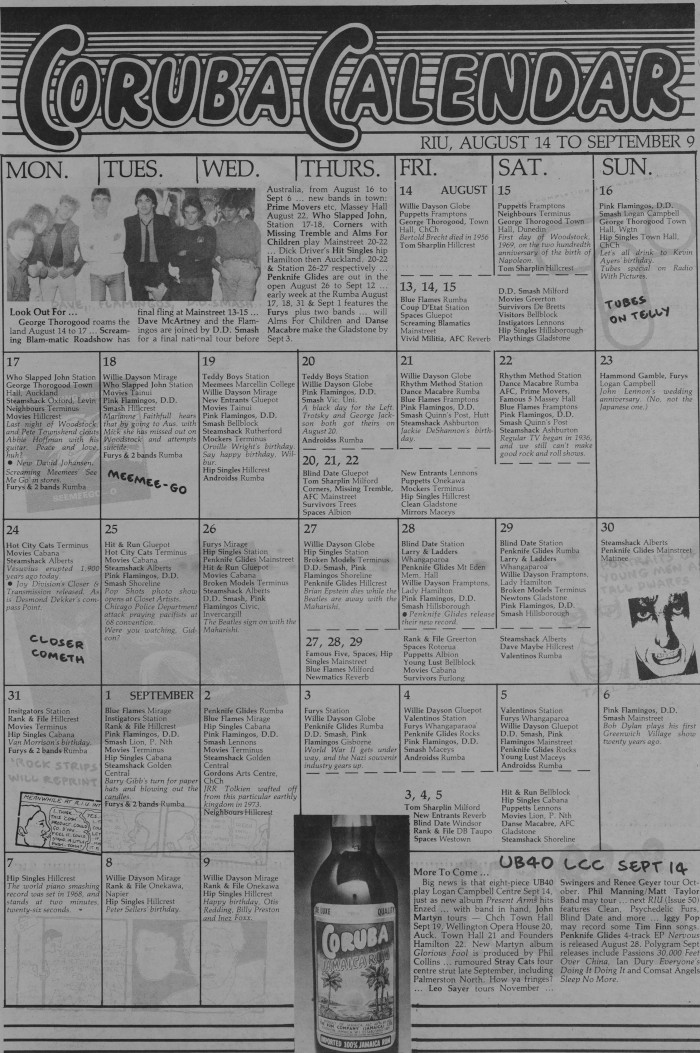 CORUBA CALENDAR
RIU, AUGUST 14 TO SEPTEMBER 9
MON.
TUES.
WED.
THURS.
FRI.
SAT.
SUN.
Look Out For ...
George Thorogood roams the
land August 14 to 17 ... Scream-
ing Blam-matic Roadshow has
final fling at Mainstreet 13-15 ...
Dave McArtney and the Flam-
ingos are joined by D.D. Smash
for a final national tour before
Australia, from August 16 to
Sept 6 ... new bands in town:
Prime Movers etc, Massey Hall
August 22, Who Slapped John,
Station 17-18, Corners with
Missing Tremble and Alms For
Children play Mainstreet 20-22
... Dick Driver's Hit Singles hip
Hamilton then Auckland, 20-22
& Station 26-27 respectively ...
Penknife Glides are out in the
open August 26 to Sept 12 ...
early week at the Rumba August
17, 18, 31 & Sept 1 features the
Furys plus two bands ... will
Alms For Children and Danse
Macabre make the Gladstone by
Sept 3.
14 AUGUST
Willie Dayson Globe
Puppetts Framptons
George Thorogood, Town
Hall, ChCh
Bertold Brecht died in 1956
Tom Sharplin Hillcrest
15
Puppetts Framptons
Neighbours Terminus
George Thorogood Town
Hall, Dunedin
First day of Woodstock,
1969, on the two hundredth
anniversary of the birth of
Napoleon.
Tom Sharplin Hillcrest
16
Pink Flamingos, D.D.
Smash Logan Campbell
George Thorogood Town
Hall, Wgtn
Hip Singles Town Hall,
ChCh
Let's all drink to Kevin
Ayers birthday.
Tubes special on Radio
With Pictures.
TUBES
ON TELLY
13, 14, 15
Blue Flames Rumba
Coup D'Etat Station
Spaces Gluepot
Screaming Blamatics
Mainstreet
Vivid Militia, AFC Reverb
D.D. Smash Milford
Movies Greerton
Survivors De Bretts
Visitors Bellblock
Instigators Lennons
Hip Singles Hillsborough
Playthings Gladstone
17
Who Slapped John Station
George Thorogood Town
Hall, Auckland
Steamshack Oxford, Levin
Neighbours Terminus
Movies Hillcrest
Last night of Woodstock
and Pete Townshend clouts
Abbie Hoffman with his
guitar. Peace and love,
huh?
● New David Johansen,
Screaming Meemees' See
Me Go in stores.
Furys & 2 bands Rumba
18
Willie Dayson Mirage
Who Slapped John Station
Movies Tainui
Pink Flamingos, D.D.
Smash Hillcrest
Marianne Faithfull hears
that by going to Aus. with
Mick she has missed out on
Woodstock and attempts
suicide.
Furys & 2 bands Rumba
MEEMEE-GO
19
Teddy Boys Station
Meemees Marcellin College
Willie Dayson Mirage
New Entrants Gluepot
Movies Tainui
Pink Flamingos, D.D.
Smash Bellblock
Steamshack Rutherford
Mockers Terminus
Orville Wright's birthday.
Say happy birthday, Wil-
bur.
Hip Singles Hillcrest
Androidss Rumba
20
Teddy Boys Station
Willie Dayson Globe
Pink Flamingos, D.D.
Smash Vic. Uni.
A black day for the Left.
Trotsky and George Jack-
son both got theirs on
August 20.
Androidss Rumba
21
Willie Dayson Globe
Rhythm Method Station
Dance Macabre Rumba
Blue Flames Framptons
Pink Flamingos, D.D.
Smash Quinn's Post, Hutt
Steamshack Ashburton
Jackie DeShannon's birth-
day.
22
Rhythm Method Station
Dance Macabre Rumba
AFC, Prime Movers,
Famous 5 Massey Hall
Blue Flames Framptons
Pink Flamingos, D.D.
Smash Quinn's Post
Steamshack Ashburton
Regular TV began in 1936,
and we still can't make
good rock and roll shows.
23
Hammond Gamble, Furys
Logan Campbell
John Lennon's wedding
anniversary. (No, not the
Japanese one.)
20, 21, 22
Blind Date Gluepot
Tom Sharplin Milford
Corners, Missing Tremble,
AFC Mainstreet
Survivors Trees
Spaces Albion
New Entrants Lennons
Puppetts Onekawa
Mockers Terminus
Hip Singles Hillcrest
Clean Gladstone
Mirrors Maceys
24
Hot City Cats Terminus
Movies Cabana
Steamshack Alberts
Vesuvius erupted 1,900
years ago today.
● Joy Division's Closer &
Transmission released. As
is Desmond Dekker's com-
pass Point.
CLOSER
COMETH
25
Hit & Run Gluepot
Hot City Cats Terminus
Movies Cabana
Steamshack Alberts
Pink Flamingos, D.D.
Smash Shoreline
Pop Shots photo show
opens at Closet Artists.
Chicago Police Department
attack praying pacifists at
68 convention.
Were you watching, Gid-
eon?
26
Furys Mirage
Hip Singles Station
Penknife Glides Mainstreet
Hit & Run Gluepot
Movies Cabana
Broken Models Terminus
Steamshack Alberts
D.D. Smash, Pink
Flamingos Civic,
Invercargill
The Beatles sign on with the
Maharishi.
27
Willie Dayson Globe
Hip Singles Station
Broken Models Terminus
D.D. Smash, Pink
Flamingos Shoreline
Penknife Glides Hillcrest
Brian Epstein dies while the
Beatles are away with the
Maharishi.
28
Blind Date Station
Larry & Ladders
Whangaparoa
Penknife Glides Mt Eden
Mem. Hall
Willie Dayson Framptons,
Lady Hamilton
Pink Flamingos, D.D.
Smash Hillsborough
● Penknife Glides release
their new record.
29
Blind Date Station
Penknife Glides Rumba
Larry & Ladders
Whangaparoa
Willie Dayson Framptons,
Lady Hamilton
Broken Models Terminus
Newtons Gladstone
Pink Flamingos, D.D.
Smash Hillsborough
30
Steamshack Alberts
Penknife Glides Mainstreet
Matinee.
27, 28, 29
Famous Five, Spaces, Hip
Singles Mainstreet
Blue Flames Milford
Newmatics Reverb
Rank & File Greerton
Spaces Rotorua
Puppetts Albion
Young Lust Bellblock
Movies Cabana
Survivors Furlong
Steamshack Alberts
Dave Maybe Hillcrest
Valentinos Rumba
31
Insitgators Station
Rank & File Hillcrest
Movies Terminus
Hip Singles Cabana
Van Morrison's birthday.
Furys & 2 bands Rumba
ROCK STRIPS
WILL REPRINT
MEANWHILE AT R.I.U. HQ
1 SEPTEMBER
Blue Flames Mirage
Instigators Station
Rank & File Hillcrest
Pink Flamingos, D.D.
Smash Lion, P. Nth
Movies Terminus
Hip Singles Cabana
Steamshack Golden
Central
Barry Gibb's turn for paper
hats and blowing out the
candles.
Furys & 2 bands Rumba
2
Penknife Glides Rumba
Blue Flames Mirage
Hip Singles Cabana
Pink Flamingos, D.D.
Smash Lennons
Movies Terminus
Steamshack Golden
Central
Gordons Arts Centre,
ChCh
JRR Tolkien wafted off
from this particular earthly
kingdom in 1973.
Neighbours Hillcrest
3
Furys Station
Willie Dayson Globe
Penknife Glides Rumba
D.D. Smash, Pink
Flamingos Gisborne
World War II gets under
way, and the Nazi souvenir
industry gears up.
4
Willie Dayson Gluepot
Valentinos Station
Furys Whangaparaoa
Penknife Glides Rocks
Pink Flamingos, D.D.
Smash Maceys
Androidss Rumba
5
Valentinos Station
Furys Whangaparoa
Willie Dayson Gluepot
D.D. Smash, Pink
Flamingos Mainstreet
Penknife Glides Rocks
Young Lust Maceys
Androidss Rumba
6
Pink Flamingos, D.D.
Smash Mainstreet
Bob Dylan plays his first
Greenwich Village show
twenty years ago.
3, 4, 5
Tom Sharplin Milford
New Entrants Reverb
Blind Date Windsor
Rank & File DB Taupo
Spaces Westown
Hit & Run Bellblock
Hip Singles Cabana
Puppetts Lennons
Movies Lion, P. Nth
Danse Macabre, AFC
Gladstone
Steamshack Shoreline
7
Hip Singles Hillcrest
The world piano smashing
record was set in 1968, and
stands at two minutes,
twenty-six seconds.
8
Willie Dayson Mirage
Rank & File Onekawa,
Napier
Hip Singles Hillcrest
Peter Sellers' birthday.
9
Willie Dayson Mirage
Rank & File Onekawa
Hip Singles Hillcrest
Happy birthday, Otis
Redding, Billy Preston
and Inez Foxx.
DE LUXE
QUALITY
CORUBA
JAMAICA RUM
THE RUM COMPANY (JAMAICA) LTD
IMPORTED 100% JAMAICA RUM
UB40 LCC SEPT 14
More To Come ...
Big news is that eight-piece UB40
play Logan Campbell Centre Sept 14,
just as new album Present Arms hits
Enzed ... with band in hand. John
Martyn tours — Chch Town Hall
Sept 19, Wellington Opera House 20,
Auck. Town Hall 21 and Founders
Hamilton 22. New Martyn album
Glorious Fool is produced by Phil
Collins ... rumoured Stray Cats four
centre strut late September, including
Palmerston North. How ya fringes?
... Leo Sayer tours November ...
Swingers and Renee Geyer tour Oct-
ober. Phil Manning/Matt Taylor
Band may tour ... next RIU (Issue 50)
features Clean, Psychedelic Furs,
Blind Date and more ... Iggy Pop
may record some Tim Finn songs.
Penknife Glides 4-track EP Nervous
is released August 28. Polygram Sept
releases include Passions 30,000 Feet
Over China, Ian Dury Everyone's
Doing It Doing It and Comsat Angels
Sleep No More.